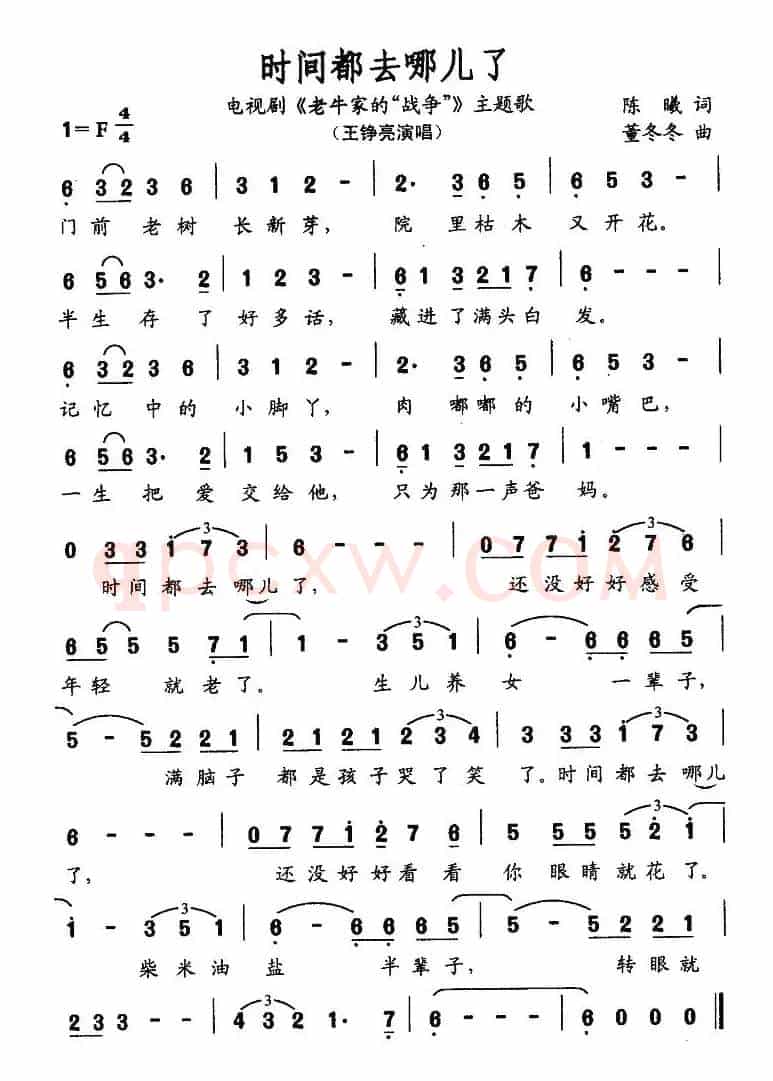 时间都去哪儿了
电视剧《老牛家的“战争”》主题歌 陈 曦 词
1=F 4/4 （王铮亮演唱） 董冬冬 曲
6 3 2 3 6 | 3 1 2 - | 2· 3 6 5 | 6 5 3 - |
门前 老树 长新芽， 院 里枯木 又开花。
6 5 6 3· 2 | 1 2 3 - | 6 1 3 2 1 7 | 6 - - - |
半生 存 了 好多话， 藏进了满头白 发。
6 3 2 3 6 | 3 1 2 - | 2· 3 6 5 | 6 5 3 - |
记忆 中的 小脚丫， 肉 嘟嘟的 小嘴巴，
6 5 6 3· 2 | 1 5 3 - | 6 1 3 2 1 7 | 1 - - - |
一生 把 爱 交给他， 只为那一声爸 妈。
0 3 3 i 7 3 | 6 - - - | 0 7 7 7 i 2 7 6 |
时间都去哪儿了， 还没好好感受
qpcxw.com
6 5 5 5 7 1 | 1 - 3 5 1 | 6 - 6 6 6 5 |
年轻 就老了。 生儿养 女 一辈子，
5 - 5 2 2 1 | 2 1 2 1 2 3 4 | 3 3 3 3 i 7 3 |
满脑子 都是孩子哭了笑 了。时间都去哪儿
6 - - - | 0 7 7 i 2 7 6 | 5 5 5 5 2 i |
了， 还没好好看看 你眼睛就花了。
i - 3 5 1 | 6 - 6 6 6 5 | 5 - 5 2 2 1 |
柴米油 盐 半辈子， 转眼就
2 3 3 - - | 4 3 2 1 2 1· 7 | 6 - - - | 6 0 0 0 ‖